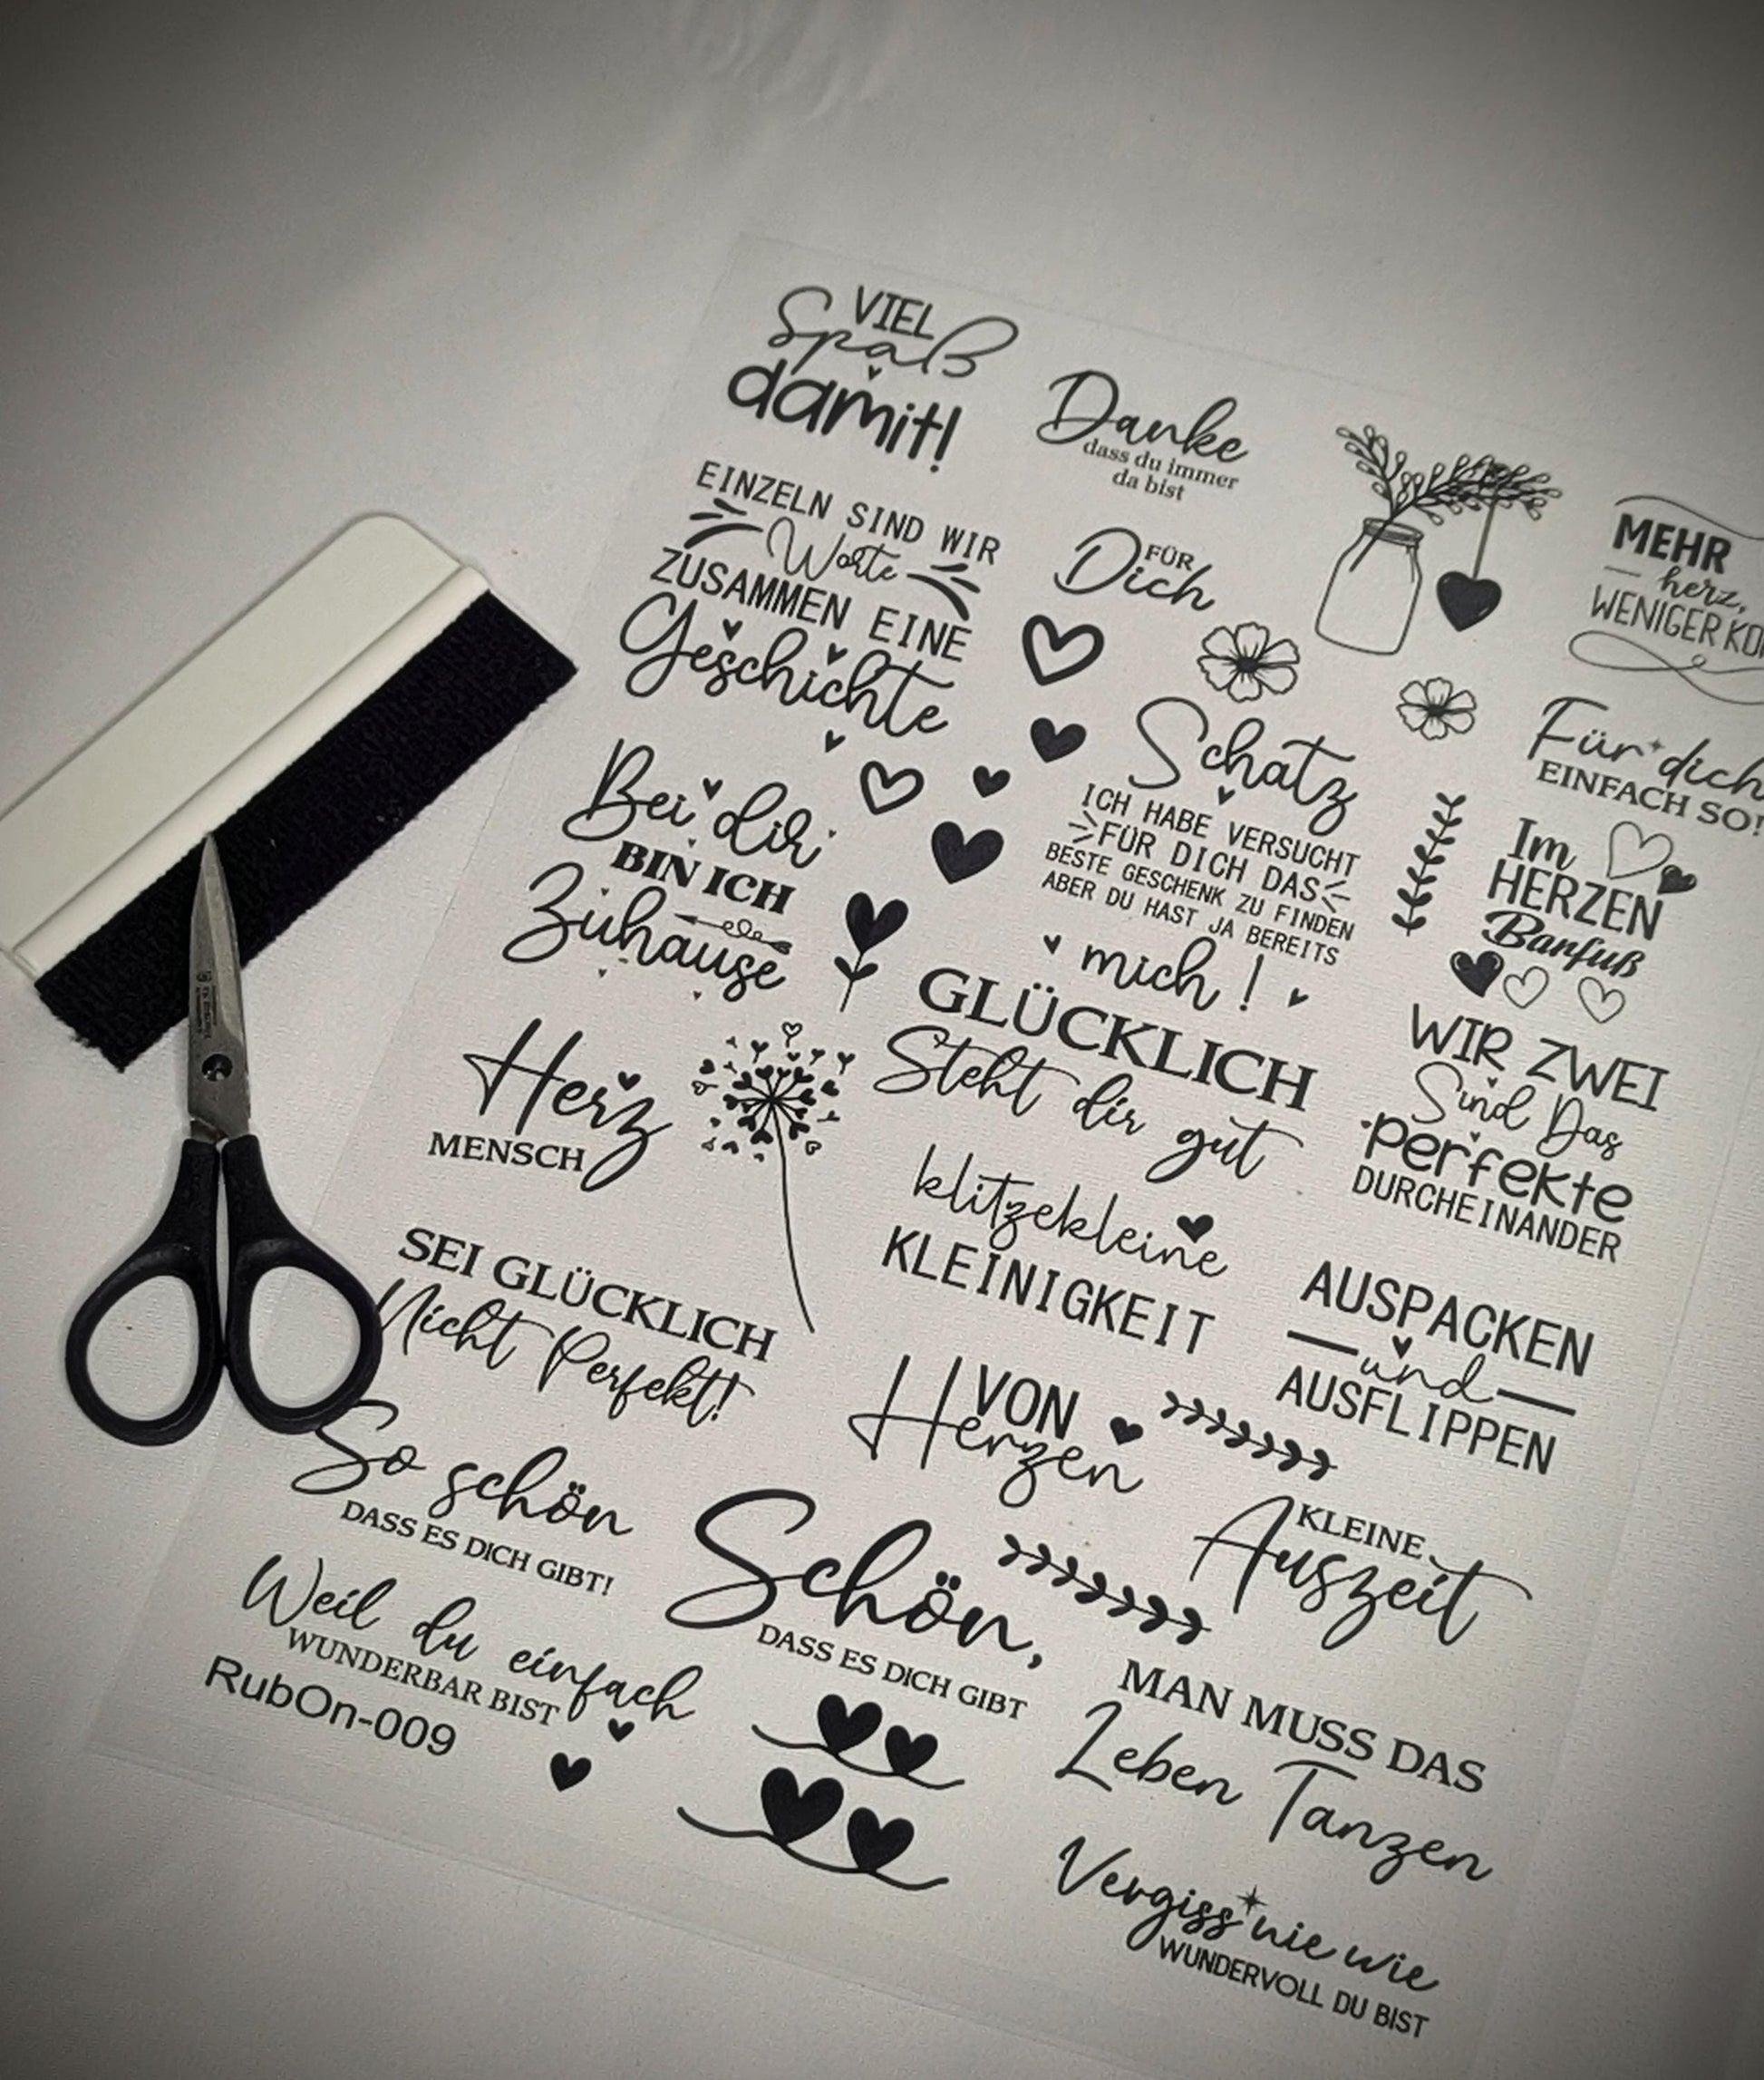 VIEL
Spaß
damit!
Danke
dass du immer
da bist
EINZELN SIND WIR
Worte
ZUSAMMEN EINE
Geschichte
FÜR
Dich
MEHR
herz,
WENIGER
Für dich
EINFACH SO!
Schatz
ICH HABE VERSUCHT
FÜR DICH DAS
BESTE GESCHENK ZU FINDEN
ABER DU HAST JA BEREITS
mich!
Bei dir
BIN ICH
Zuhause
Im
HERZEN
Barfuß
GLÜCKLICH
Steht dir gut
WIR ZWEI
Sind Das
perfekte
DURCHEINANDER
Herz
MENSCH
klitzekleine
KLEINIGKEIT
SEI GLÜCKLICH
Nicht Perfekt!
AUSPACKEN
und
AUSFLIPPEN
VON
Herzen
So schön
DASS ES DICH GIBT!
KLEINE
Auszeit
Schön,
DASS ES DICH GIBT
Weil du einfach
WUNDERBAR BIST
RubOn-009
MAN MUSS DAS
Leben Tanzen
Vergiss nie wie
WUNDERVOLL DU BIST